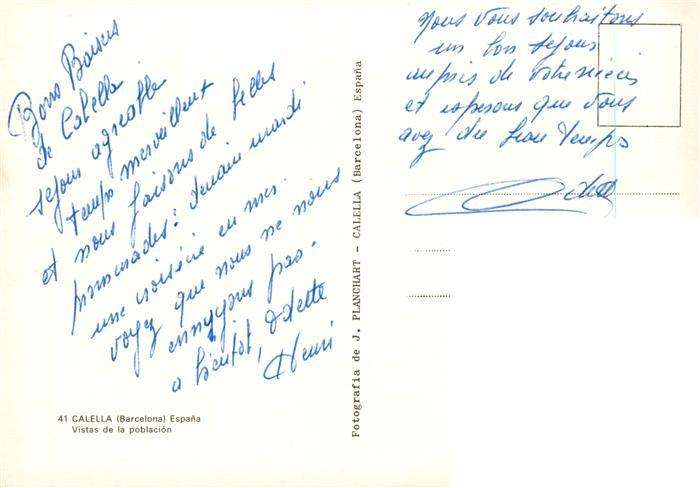 Bons Baisers
de Calella
séjour agréable
temps merveilleux
et nous faisons de belles
promenades: demain mardi
une croisière en mer
voyez que nous ne nous
ennuyons pas.
a bientôt, Odette
Henri
41 CALELLA (Barcelona) España
Vistas de la población
Fotografía de J. PLANCHART - CALELLA (Barcelona) España
Nous vous souhaitons
un bon séjour
auprès de votre
et espérons que vous
avez du beau temps
Odette